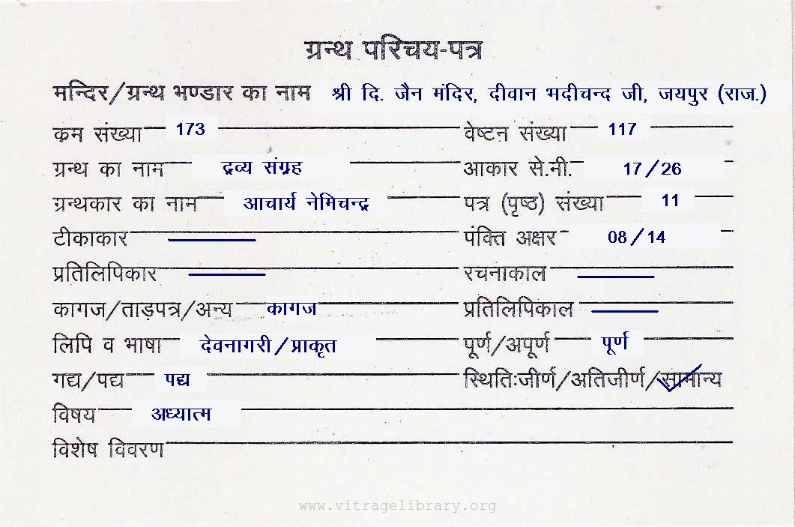 ग्रन्थ परिचय-पत्र
मन्दिर/ग्रन्थ भण्डार का नाम श्री दि. जैन मंदिर, दीवान भदीचन्द जी, जयपुर (राज.)
कम संख्या 173 वेष्टन संख्या 117
ग्रन्थ का नाम द्रव्य संग्रह आकार से.मी. 17/26
ग्रन्थकार का नाम आचार्य नेमिचन्द्र पत्र (पृष्ठ) संख्या 11
टीकाकार पंक्ति अक्षर 08/14
प्रतिलिपिकार रचनाकाल
कागज/ताड़पत्र/अन्य कागज प्रतिलिपिकाल
लिपि व भाषा देवनागरी/प्राकृत पूर्ण/अपूर्ण पूर्ण
गद्य/पद्य पद्य स्थितिःजीर्ण/अतिजीर्ण/सामान्य
विषय अध्यात्म
विशेष विवरण
www.vitragelibrary.org